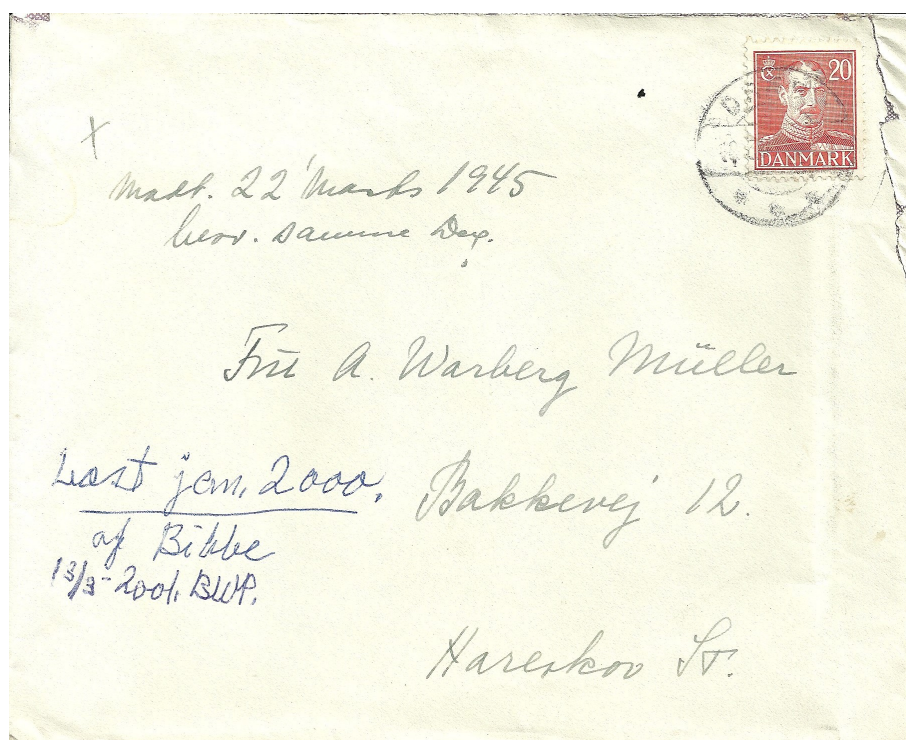 20
DANMARK
x
Modt. 22' Marts 1945
besv. samme Dag.
Fru A. Warberg Müller
Bakkevej 12.
Hareskov St.
Læst jan. 2000.
af Bibbe
13/3-2001. BWP.